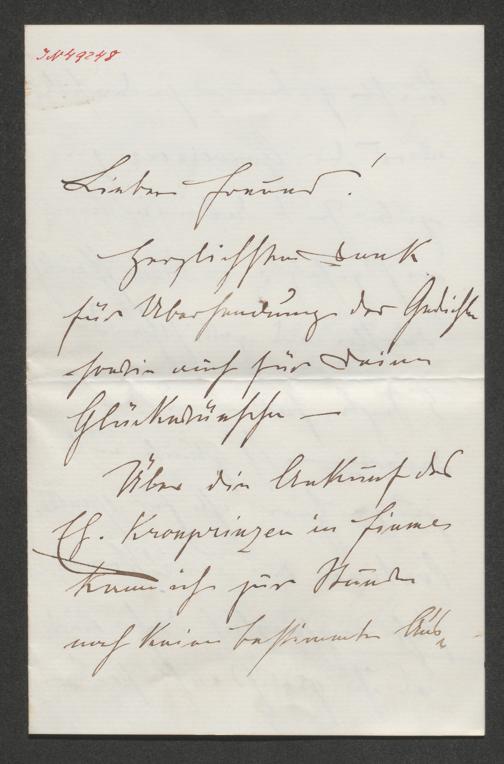 JN 49248
Lieber Freund!
Herzlichsten Dank
für Übersendung der Gedichte
sowie auch für Deine
Glückwünsche —
Über die Ankunft des
Kronprinzen in Fiume
kann ich zur Stunde
noch keine bestimmte Aus-